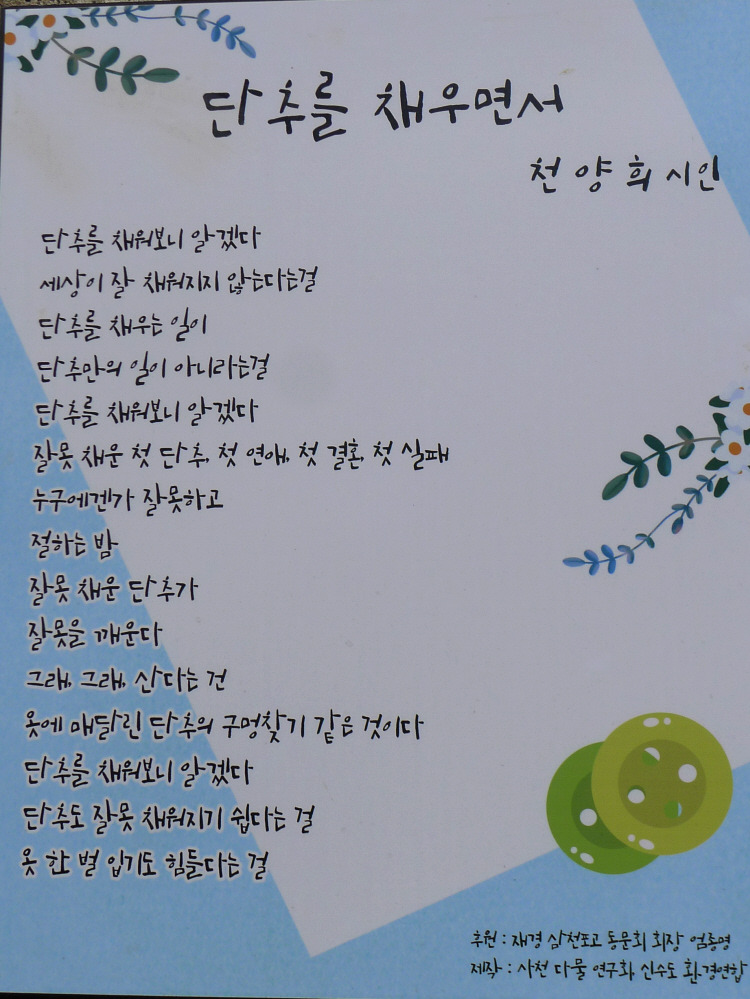 단추를 채우면서
천양희 시인
단추를 채워보니 알겠다
세상이 잘 채워지지 않는다는걸
단추를 채우는 일이
단추만의 일이 아니라는걸
단추를 채워보니 알겠다
잘못 채운 첫 단추, 첫 연애, 첫 결혼, 첫 실패
누구에겐가 잘못하고
절하는 밤
잘못 채운 단추가
잘못을 깨운다
그래, 그래, 산다는 건
옷에 매달린 단추의 구멍찾기 같은 것이다
단추를 채워보니 알겠다
단추도 잘못 채워지기 쉽다는 걸
옷 한 벌 입기도 힘들다는 걸
후원 : 재경 삼천포고 동문회 회장 엄종명
제작 : 사천 다물 연구회, 신수도 환경연합